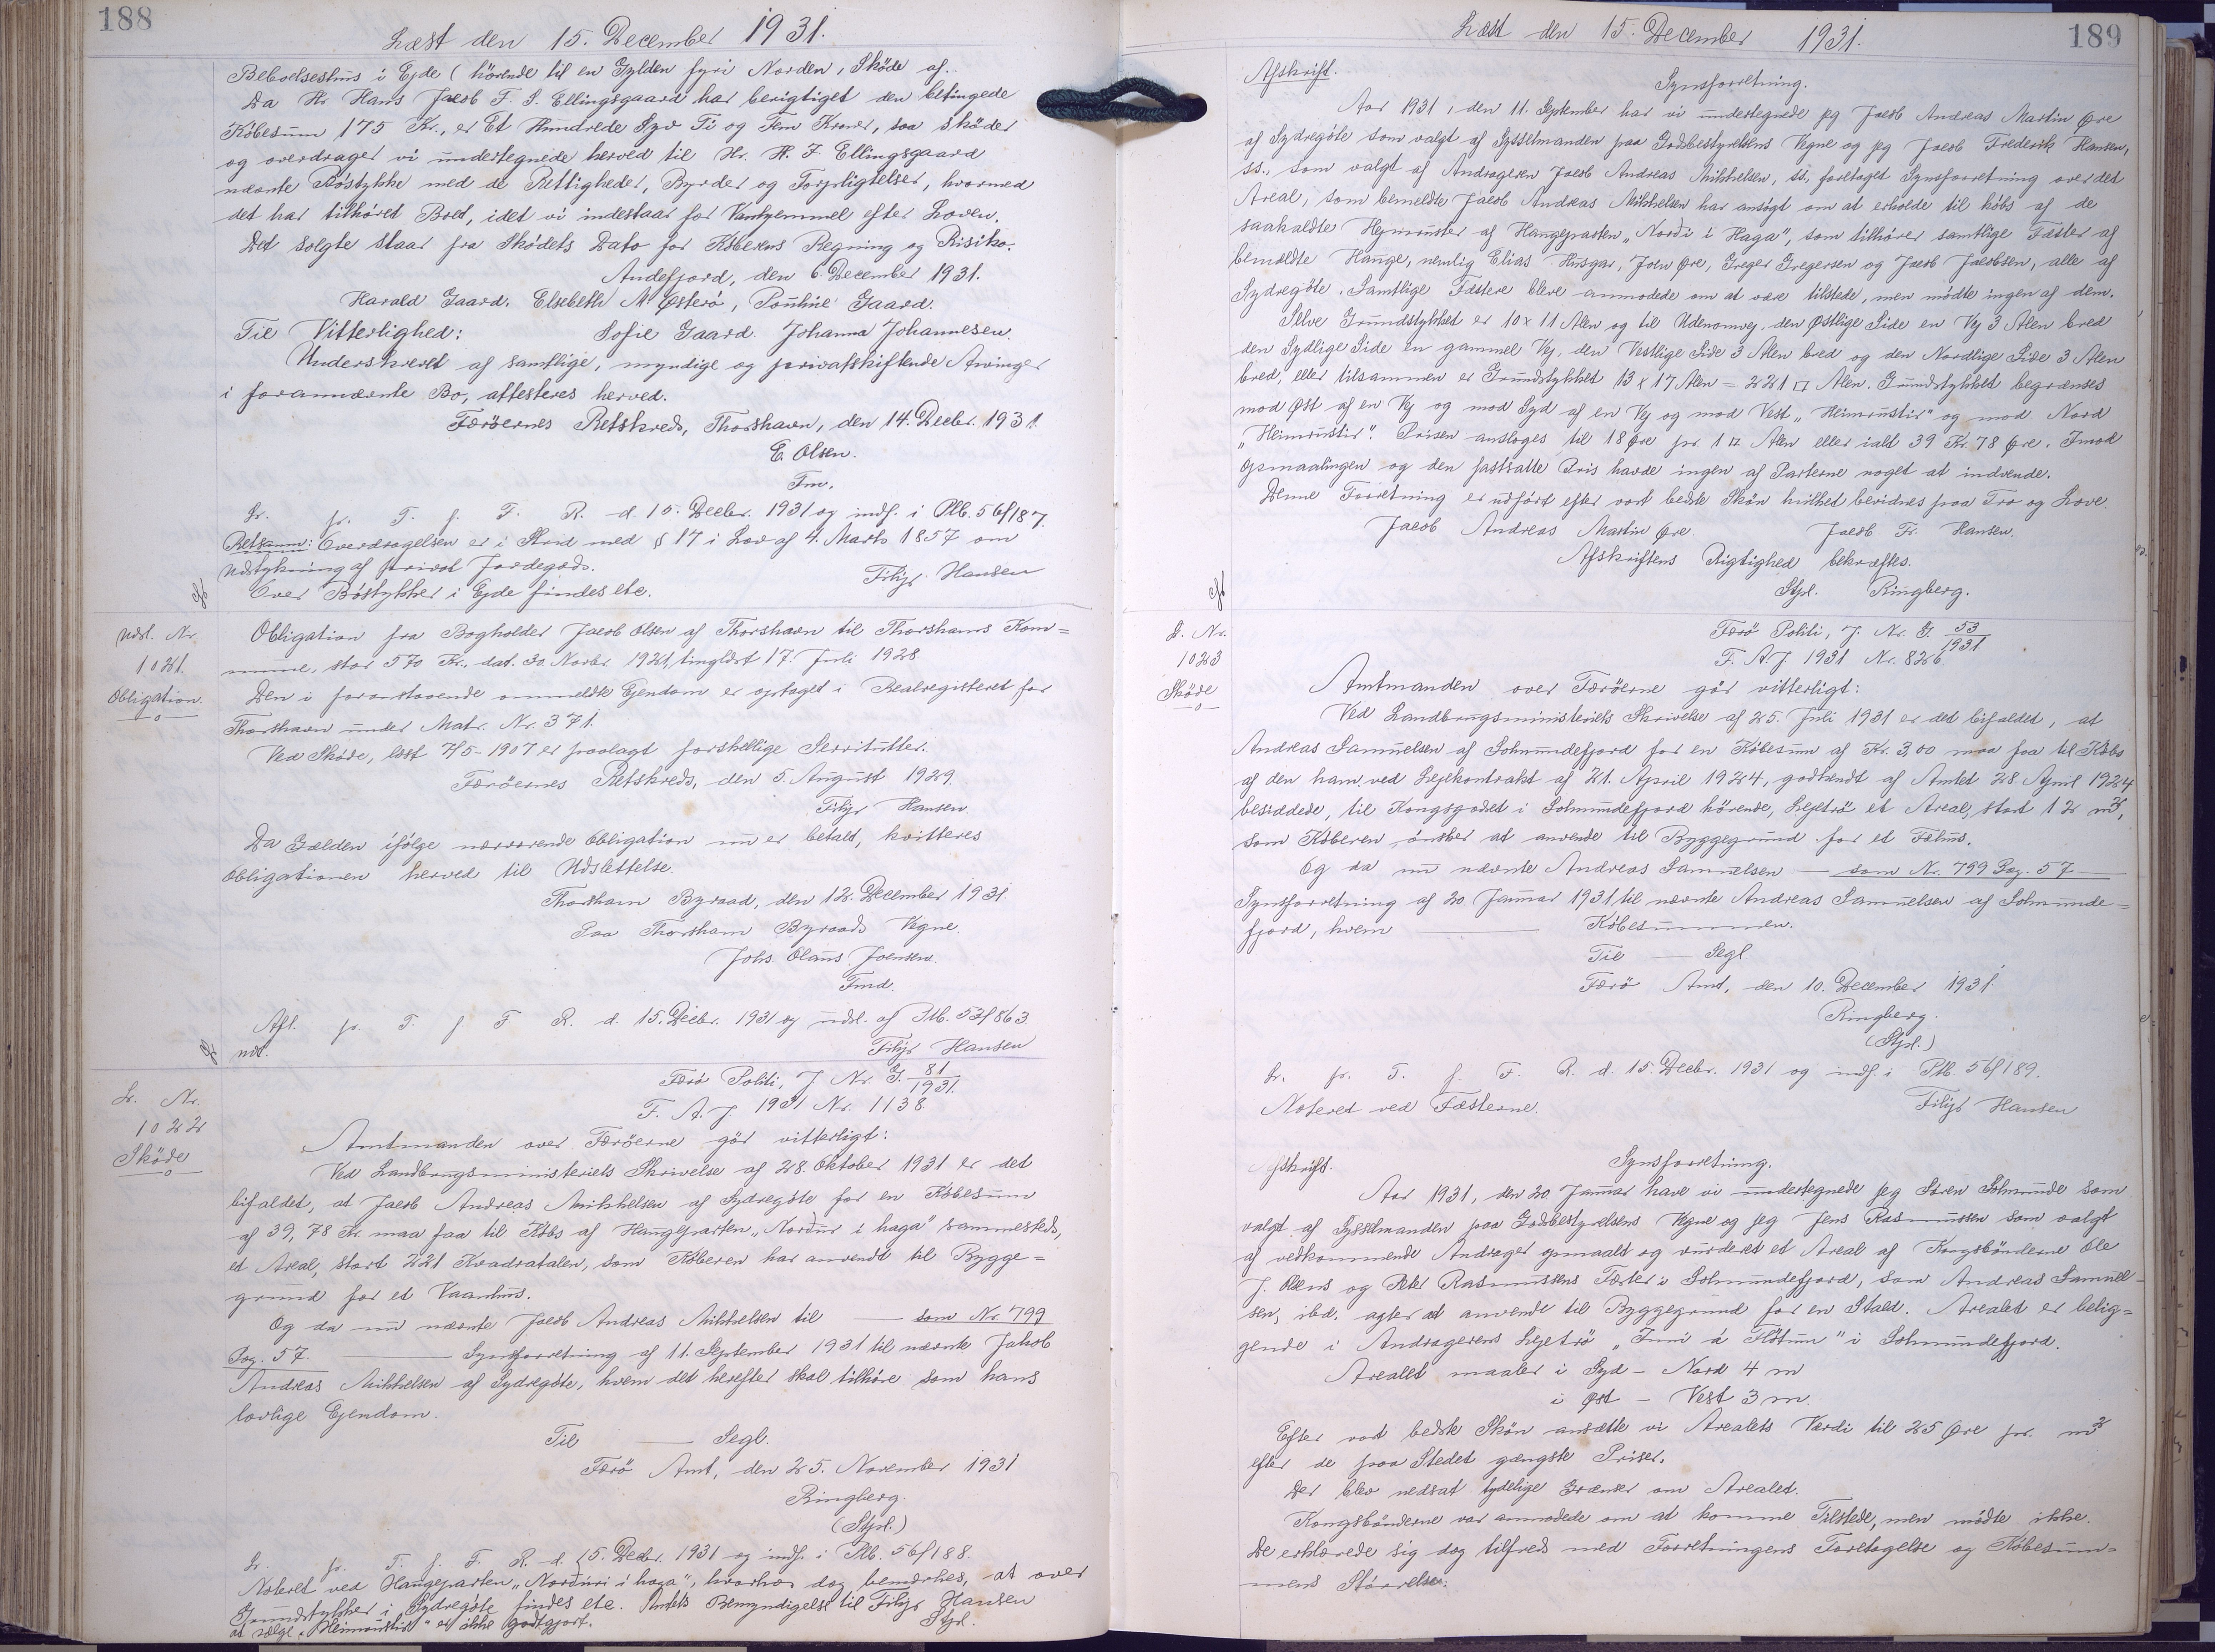 188
Læst den 15. December 1931.
Beboelseshus i Ejde (hörende til en Gylden fyri Norden, Sköde af..
Da Hr. Hans Jacob F. J. Ellingsgaard har berigtiget den betingede
Købesum 175 Kr., er Et Hundrede Syv Ti og Fem Kroner, saa sköder
og overdrager vi undertegnede herved til Hr. H. J. Ellingsgaard
nævnte Bøstykke med de Rettigheder, Byrder og Forpligtelser, hvormed
det har tilhöret Boet, idet vi indestaar for Vanhjemmel efter Loven.
Det solgte staar fra Skødets Dato for Köberens Regning og Risiko.
Andefjord, den 6. December 1931.
Harald Gaard. Elsebeth M Østerö, Pouline Gaard.
Til Vitterlighed: Sofie Gaard. Johanna Johannesen.
Underskrevet af samtlige, myndige og privatskiftende Arvinger
i forannævnte Bo, attesteres herved.
Færöernes Retskreds, Thorshavn, den 14. Decbr. 1931.
E. Olsen.
Fm.
Lr. pr. T. f. F. R. d. 15. Decbr. 1931 og indf. i Ptb. 56f/187.
Retsanm: Overdragelsen er i Strid med § 17 i Lov af 4. Marts 1857 om
Udstykning af privat Jordegods.
Over Böstykker i Ejde findes etc. Filip Hansen
Udsl. Nr.
1021.
Obligation.
Obligation fra Bogholder Jacob Olsen af Thorshavn til Thorshavns Kom=
mune, stor 570 Kr., dat. 30. Novbr. 1921, tinglæst 17. Juli 1928.
Den i foranstaaende ommeldte Ejendom er optaget i Realregisteret for
Thorshavn under Matr. Nr. 371.
Ved Sköde, læst 7/5-1907 er paalagt forskellige Servitutter.
Færöernes Retskreds, den 5. August 1929.
Filip Hansen.
Da Gælden ifølge nærværende Obligation nu er betalt, kvitteres
Obligationen herved til Udslettelse.
Thorshavn Byraad, den 12. December 1931.
Paa Thorshavn Byraads Vegne.
Johs. Olaus Joensen.
Fmd.
Afl. pr. T. f. F R. d. 15. Decbr. 1931 og udsl. af Ptb. 53f/863
ndt. Filip Hansen
Lr. Nr.
1022
Sköde
Færö Politi, J. Nr. G. 81/1931.
F. A. J. 1931 Nr. 1138.
Amtmanden over Færöerne gör vitterligt:
Ved Landbrugsministeriets Skrivelse af 28. Oktober 1931 er det
bifaldet, at Jacob Andreas Mikkelsen af Sydregöte for en Købesum
af 39,78 Kr. maa faa til Købs af Haugeparten „Norður i haga" sammesteds,
et Areal, stort 221 Kvadratalen, som Køberen har anvendt til Bygge=
grund for et Vaanhus.
Og da nu nævnte Jacob Andreas Mikkelsen til — som Nr. 799
Pag. 57. — Synsforretning af 11. September 1931 til nævnte Jakob
Andreas Mikkelsen af Sydregöte, hvem det herefter skal tilhöre som hans
lovlige Ejendom.
Til — Segl.
Færö Amt, den 25. November 1931
Ringberg.
(Stpl.)
Lr. pr. T. f. F. R. d. 15. Decbr. 1931 og indf. i Ptb. 56f/188.
Noteret ved Haugeparten „Norðuri i haga", hvorhos dog bemærkes, at over
Grundstykker i Sydregöte findes etc. Amtets Bemyndigelse til Filip Hansen
at sælge „Heimrustir" er ikke godtgjort. Stpl.
189
Læst den 15. December 1931.
Afskrift.
Synsforretning.
Aar 1931, den 11. September har vi undertegnede jeg Jacob Andreas Martin Øre
af Sydregöte som valgt af Sysselmanden paa Godsbestyrelsens Vegne og jeg Jacob Frederik Hansen,
ss., som valgt af Andrageren Jacob Andreas Mikkelsen, ss. foretaget Synsforretning over det
Areal, som bemeldte Jacob Andreas Mikkelsen har ansøgt om at erholde til købs af de
saakaldte Heymruster af Haugeparten „Norði i Haga", som tilhører samtlige Fæster af
bemeldte Hauge, nemlig Elias Husgar, John Øre, Greger Gregersen og Jacob Jacobsen, alle af
Sydregöte. Samtlige Fæstere bleve anmodede om at være tilstede, men mödte ingen af dem.
Selve Grundstykket er 10 x 11 Alen og til Udenomvej. den Østlige Side en Vej 3 Alen bred
den Sydlige Side en gammel Vej, den Vestlige Side 3 Alen bred og den Nordlige Side 3 Alen
bred, eller tilsammen er Grundstykket 13 x 17 Alen = 221 □ Alen. Grundstykket begrænses
mod Øst af en Vej og mod Syd af en Vej og mod Vest „Heimrustir" og mod Nord
„Heimrustir". Prisen ansloges til 18 Øre pr 1 □ Alen eller ialt 39 Kr. 78 Øre. Imod
Opmaalingen og den fastsatte Pris havde ingen af Parterne noget at indvende.
Denne Forretning er udfört efter vort bedste Skön hvilket bevidnes paa Tro og Love.
Jacob Andreas Martin Øre. Jacob Fr. Hansen.
Afskriftens Rigtighed bekræftes.
Stpl. Ringberg.
L. Nr.
1023
Sköde
Færö Politi, J. Nr. G. 53/1931
F. A. J. 1931 Nr. 826.
Amtmanden over Færöerne gör vitterligt:
Ved Landbrugsministeriets Skrivelse af 25. Juli 1931 er det bifaldet, at
Andreas Samuelsen af Solmundefjord for en Købesum af Kr. 3,00 maa faa til Købs
af den ham ved Lejekontrakt af 21. April 1924, godkendt af Amtet 28 April 1924
besiddede, til Kongsgodset i Solmundefjord hörende, Lejetrö et Areal, stort 12 m²,
som Køberen ønsker at anvende til Byggegrund for et Fæhus.
Og da nu nævnte Andreas Samuelsen — som Nr. 799 Pag. 57 —
Synsforretning af 20. Januar 1931 til nævnte Andreas Samuelsen af Solmunde=
fjord, hvem — Købesummen.
Til — Segl.
Færö Amt, den 10. December 1931.
Ringberg.
(Stpl.)
Lr. pr. T. f. F. R. d. 15. Decbr. 1931 og indf. i Ptb. 56f/189.
Noteret ved Fæsterne. Filip Hansen
Afskrift.
Synsforretning.
Aar 1931, den 20. Januar have vi undertegnede jeg Sören Solmunde som
valgt af Sysselmanden paa Godsbestyrelsens Vegne og jeg Jens Rasmussen som valgt
af vedkommende Andrager opmaalt og vurderet et Areal af Kongsbönderne Ole
J. Olsens og Peter Rasmussens Fæste i Solmundefjord, som Andreas Samuel-
sen, ibd. agter at anvende til Byggegrund for en Stald. Arealet er belig=
gende i Andragerens Lejetrö „Inni á Fløtum" i Solmundefjord.
Arealet maaler i Syd - Nord 4 m
i Øst - Vest 3 m.
Efter vort bedste Skön ansætte vi Arealets Værdi til 25 Øre pr. m²
efter de paa Stedet gængste Priser.
Der blev nedsat tydelige Grænser om Arealet.
Kongsbönderne var anmodede om at komme Tilstede, men mödte ikke.
De erklærede sig dog tilfreds med Forretningens Foretagelse og Købesum=
mens Störrelse.